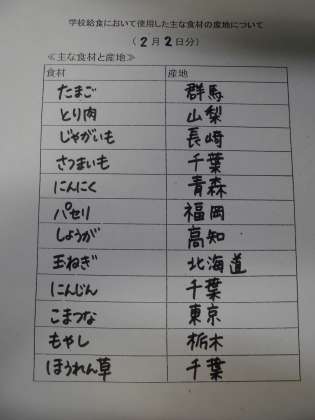 学校給食において使用した主な食材の産地について
(2月2日分)
≪主な食材と産地≫
食材 産地
たまご 群馬
とり肉 山梨
じゃがいも 長崎
さつまいも 千葉
にんにく 青森
パセリ 福岡
しょうが 高知
玉ねぎ 北海道
にんじん 千葉
こまつな 東京
もやし 栃木
ほうれん草 千葉